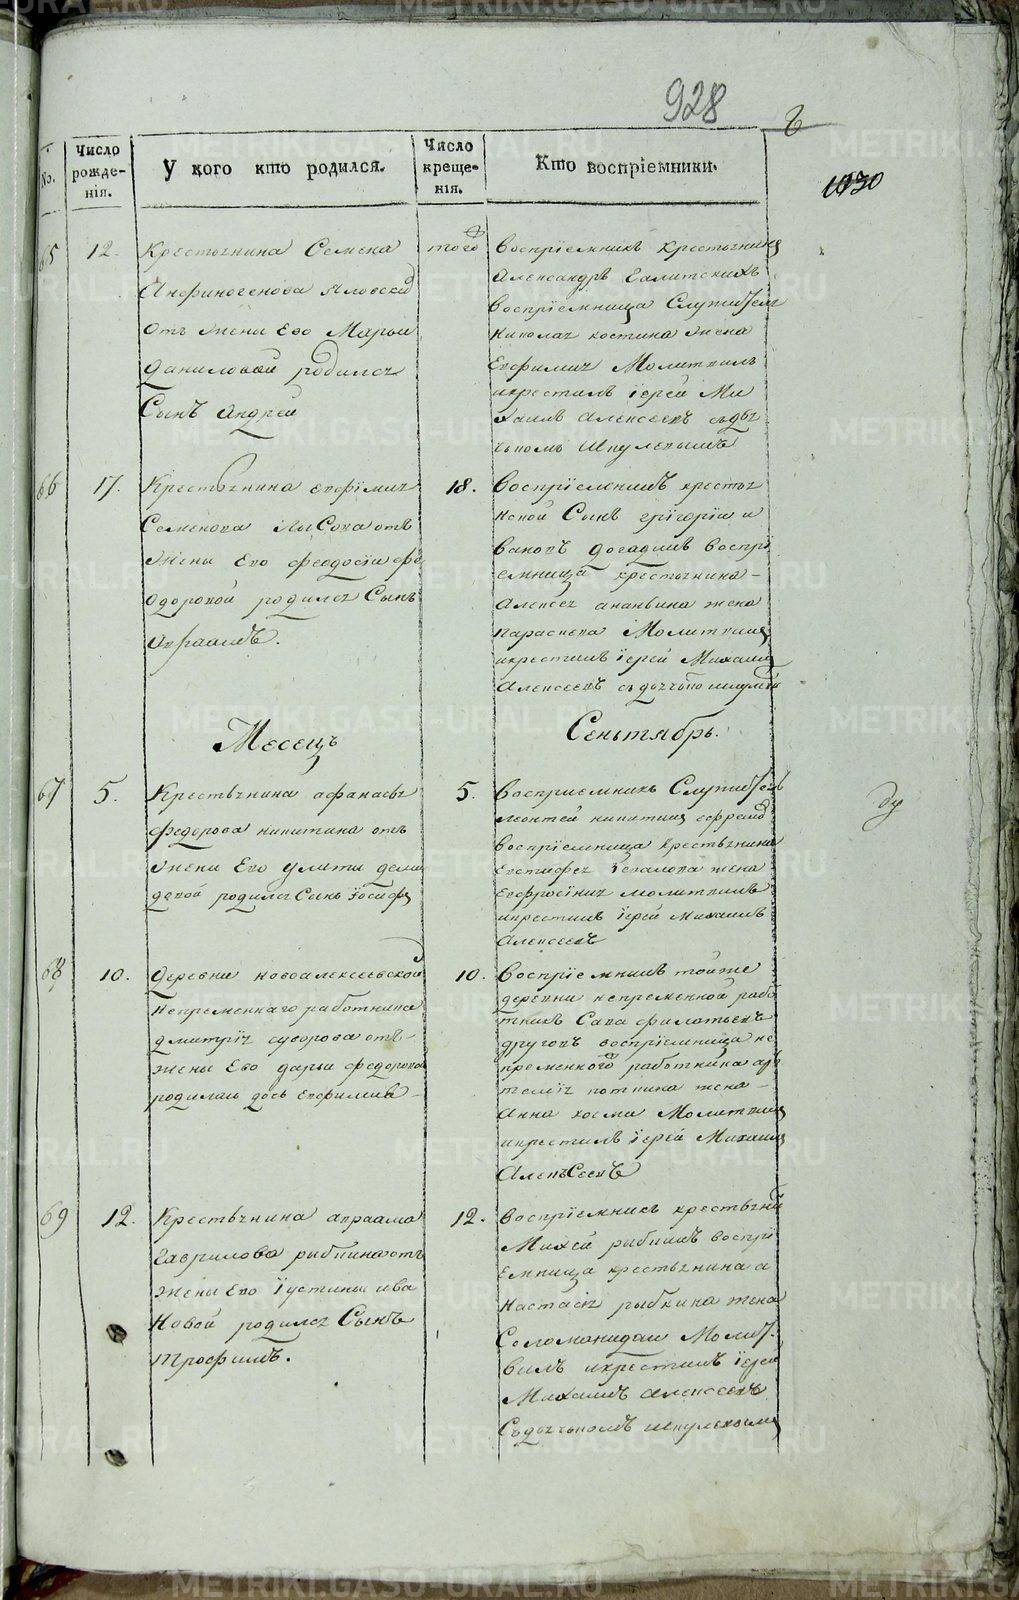 928
1030
№.
Число рожде-нія.
У кого кто родился.
Число креще-нія.
Кто воспріемники.
65
12.
Крестьянина Семена
Анфиногенова
отъ жены Его Марьи
Даниловой родился
Сынъ Андрей
того
Воспріемникъ крестьянинъ
Александръ Галитскихъ
Воспріемница Служителя
Николая костина жена
Евфимия Молитвилъ
икрестилъ іерей Ми
хаилъ Алексеевъ съдья
чкомъ Шкулевымъ
66
17.
Крестьянина евфімия
Семенова Лысова отъ
жены Его феодосіи фе
одоровой родился Сынъ
Авраамъ.
18.
Воспріемникъ крестья
нской Сынъ григорій и
вановъ воспрі
емница крестьянина
Алексея ананьина жена
параскева Молитвилъ
икрестилъ іерей Михаилъ
Алексеевъ
Месецъ
Сеньтябрь.
67
5.
Крестьянина афанасья
федорова никитина отъ
жены Его улиты деми
довой родился Сынъ Іосифъ
5.
Восприемникъ Служитель
леонтей никитинъ
воспріемница крестьянина
Евстифея жена
евфросиния молитвилъ
икрестилъ іерей Михаилъ
Алексеевъ
68
10.
Деревни новоалексеевской
непременнаго работника
дмитрія суворова отъ
жены Его дарьи федоровой
родилась дочь Евфимия
10.
Воспріемникъ тойже
деревни непременной рабо
тникъ Сава
воспріемница не
пременного работника ар
темія жена
Анна Молитвилъ
икрестилъ іерей Михаилъ
Алексеевъ
69
12.
Крестьянина авраама
Гаврилова рыбкина отъ
жены Его Іустины ива
новой родился Сынъ
трофимъ.
12.
Воспріемникъ крестьянинъ
Михей рыбкинъ воспрі
емница крестьянина а
настасія рыбкина жена
Соломанидаи Молит
вилъ икрестилъ іерей
Михаилъ Алексеевъ
Съдьячкомъ шкулевымъ
METRIKI.GASO-URAL.RU